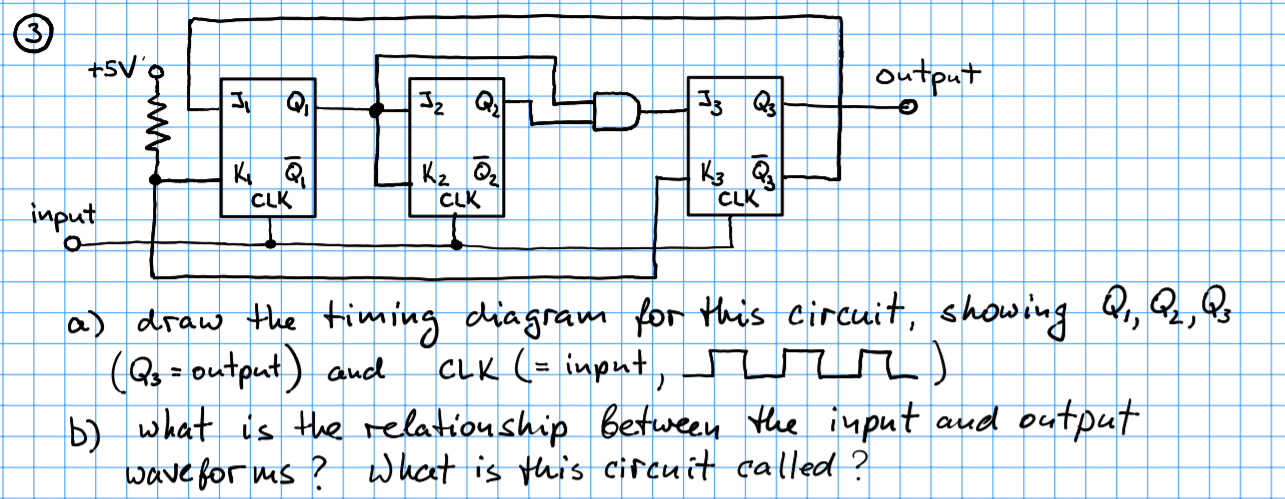 ③
+5V
output
J₁ Q₁
J₂ Q₂
J₃ Q₃
K₁ Q̅₁
K₂ Q̅₂
K₃ Q̅₃
CLK
CLK
CLK
input
a) draw the timing diagram for this circuit, showing Q₁, Q₂, Q₃
(Q₃ = output) and CLK (= input, )
b) what is the relationship between the input and output
waveforms? What is this circuit called?